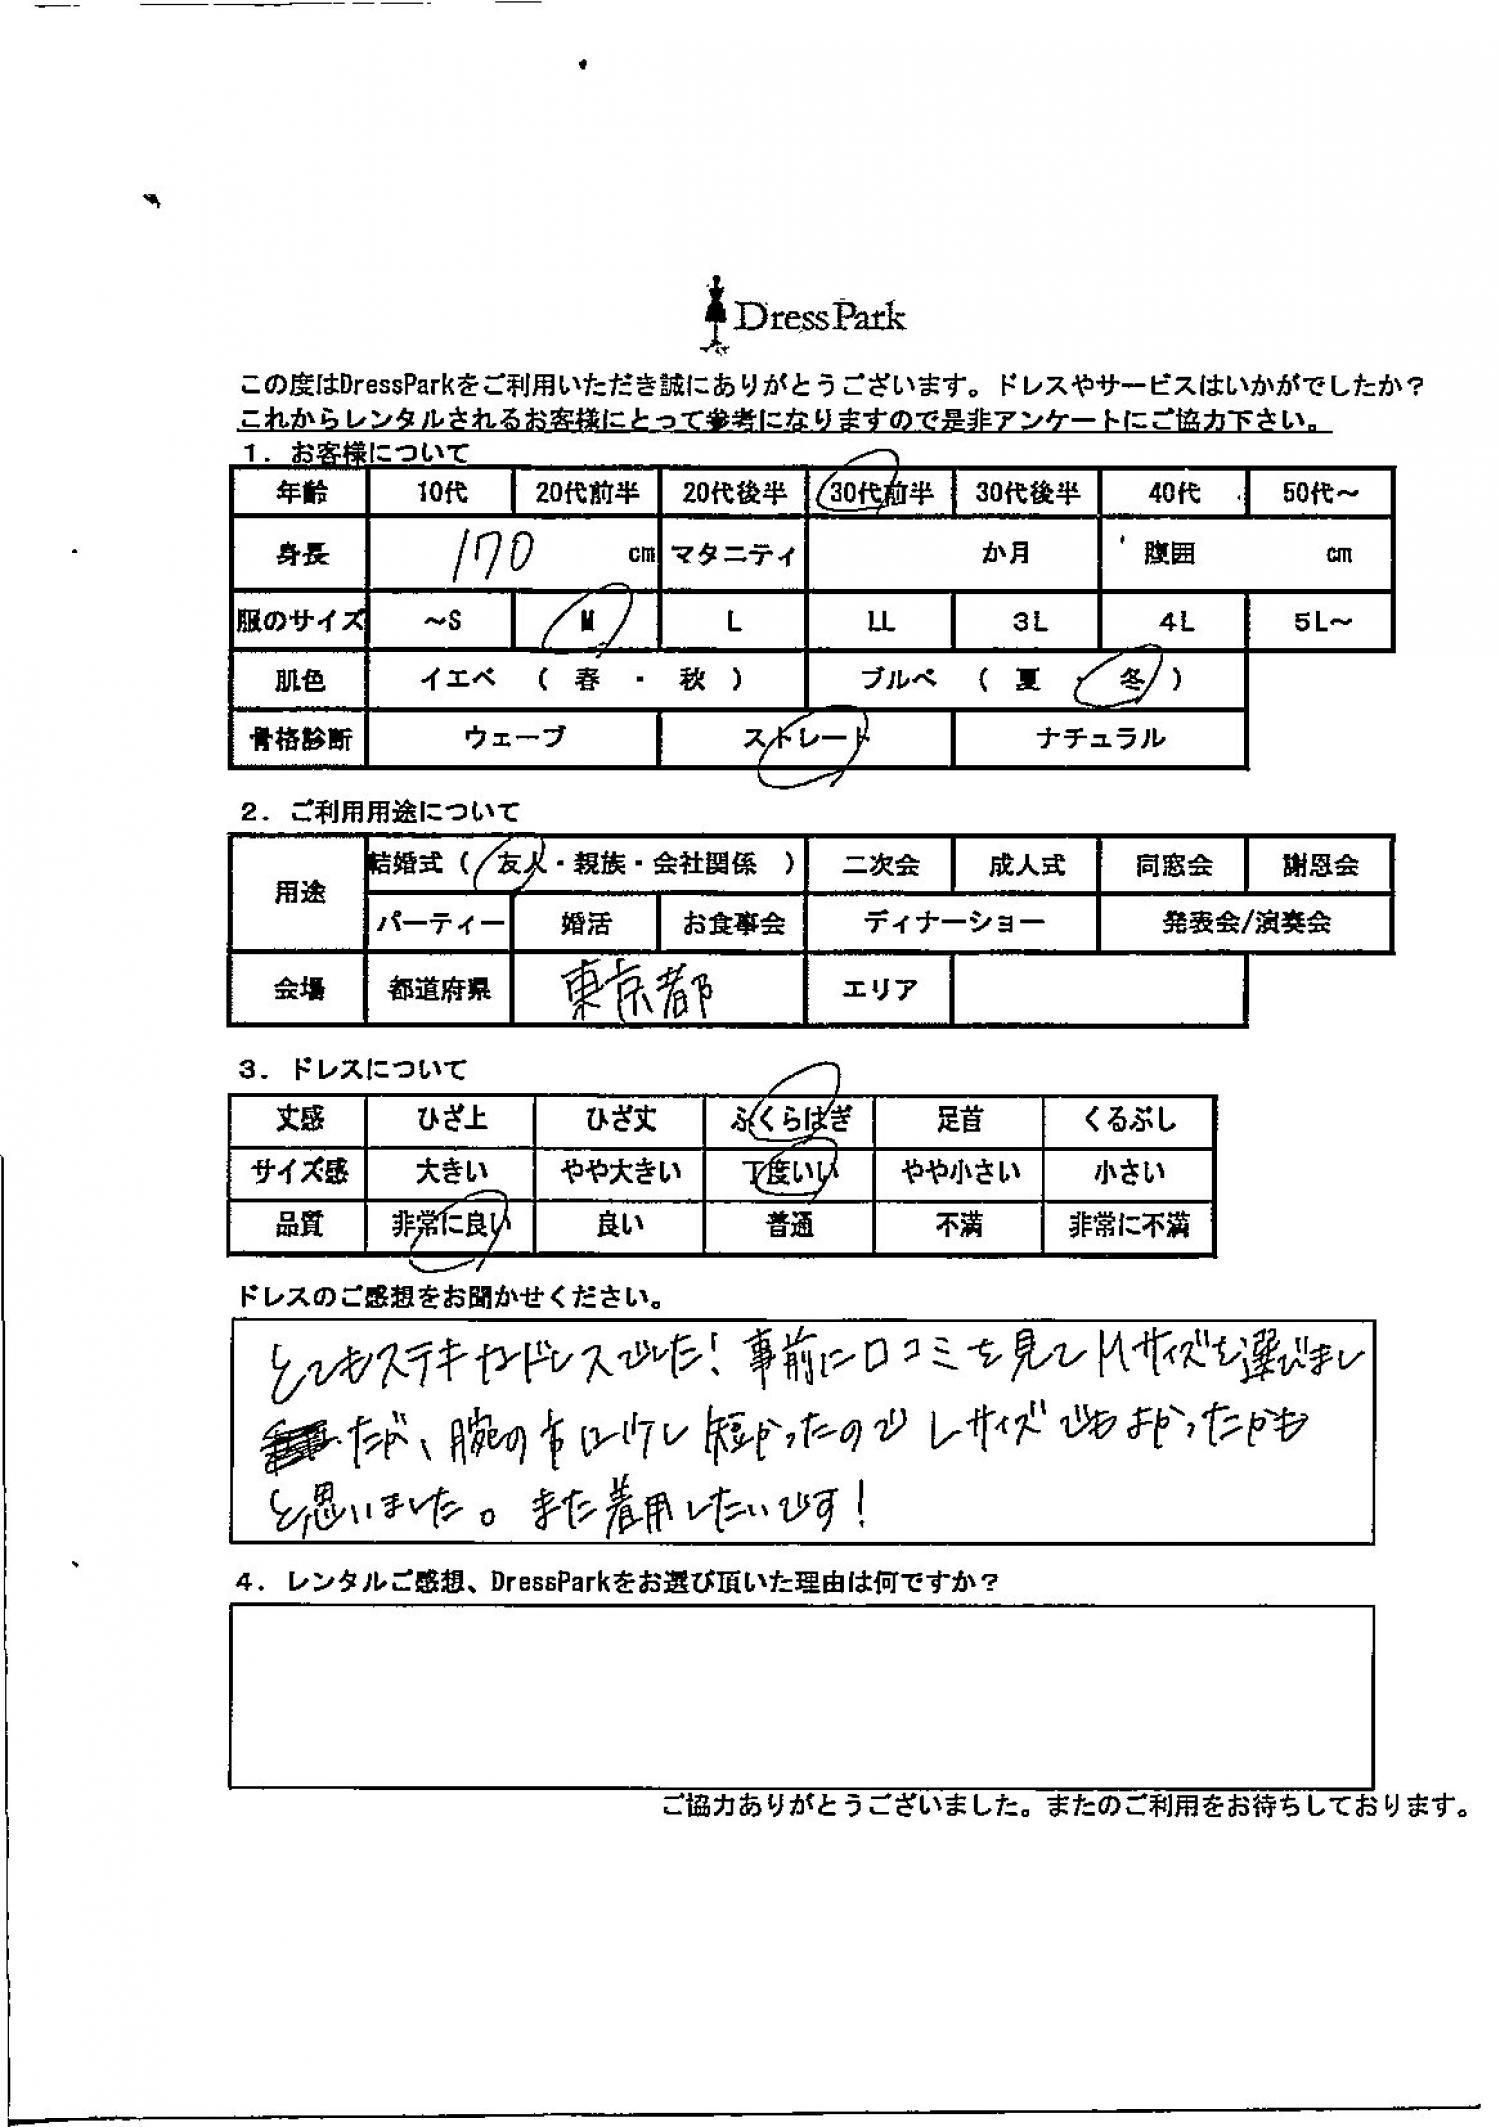 DressPark
この度はDressParkをご利用いただき誠にありがとうございます。ドレスやサービスはいかがでしたか？
これからレンタルされるお客様にとって参考になりますので是非アンケートにご協力下さい。
1．お客様について
年齢 10代 20代前半 20代後半 30代前半 30代後半 40代 50代～
身長 170 cm マタニティ か月 腹囲 cm
服のサイズ ～S M L LL 3L 4L 5L～
肌色 イエベ （ 春 ・ 秋 ） ブルベ （ 夏 ・ 冬 ）
骨格診断 ウェーブ ストレート ナチュラル
2．ご利用用途について
用途 結婚式（ 友人・親族・会社関係 ） 二次会 成人式 同窓会 謝恩会
パーティー 婚活 お食事会 ディナーショー 発表会/演奏会
会場 都道府県 東京都 エリア
3．ドレスについて
丈感 ひざ上 ひざ丈 ふくらはぎ 足首 くるぶし
サイズ感 大きい やや大きい 丁度いい やや小さい 小さい
品質 非常に良い 良い 普通 不満 非常に不満
ドレスのご感想をお聞かせください。
とてもステキなドレスでした！事前に口コミを見てMサイズを選びまし
たが、腕の布は少し短かったのでLサイズでもよかったかも
と思いました。また着用したいです！
4．レンタルご感想、DressParkをお選び頂いた理由は何ですか？
ご協力ありがとうございました。またのご利用をお待ちしております。